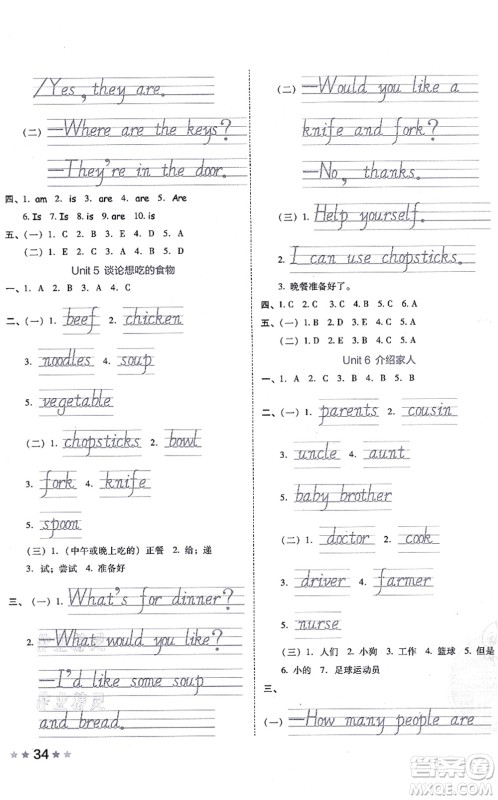 /Yes, they are.
(二) —Where are the keys?
—They're in the door.
四. 1. am 2. is 3. are 4. are 5. Are
6. Is 7. Is 8. is 9. are 10. is
五. (一) 1. C 2. B 3. E 4. D 5. A
(二) 1. E 2. C 3. D 4. B 5. A
Unit 5 谈论想吃的食物
一. 1. A 2. B 3. A 4. C
二. (一) 1. beef 2. chicken
3. noodles 4. soup
5. vegetable
(二) 1. chopsticks 2. bowl
3. fork 4. knife
5. spoon
(三) 1. (中午或晚上吃的) 正餐 2. 给;递
3. 试;尝试 4. 准备好
三. (一) 1. What's for dinner?
2. —What would you like?
—I'd like some soup
and bread.
34
(二) 1. —Would you like a
knife and fork?
—No, thanks.
(三) 1. Help yourself.
2. I can use chopsticks.
3. 晚餐准备好了。
四. 1. C 2. C 3. A 4. B 5. A
五. (一) 1. B 2. D 3. E 4. C 5. A
(二) 1. D 2. E 3. B 4. C 5. A
Unit 6 介绍家人
一. 1. A 2. B 3. A 4. C 5. A
二. (一) 1. parents 2. cousin
3. uncle 4. aunt
5. baby brother
(二) 1. doctor 2. cook
3. driver 4. farmer
5. nurse
(三) 1. 人们 2. 小狗 3. 工作 4. 篮球 5. 但是
6. 小的 7. 足球运动员
三.
(一) —How many people are